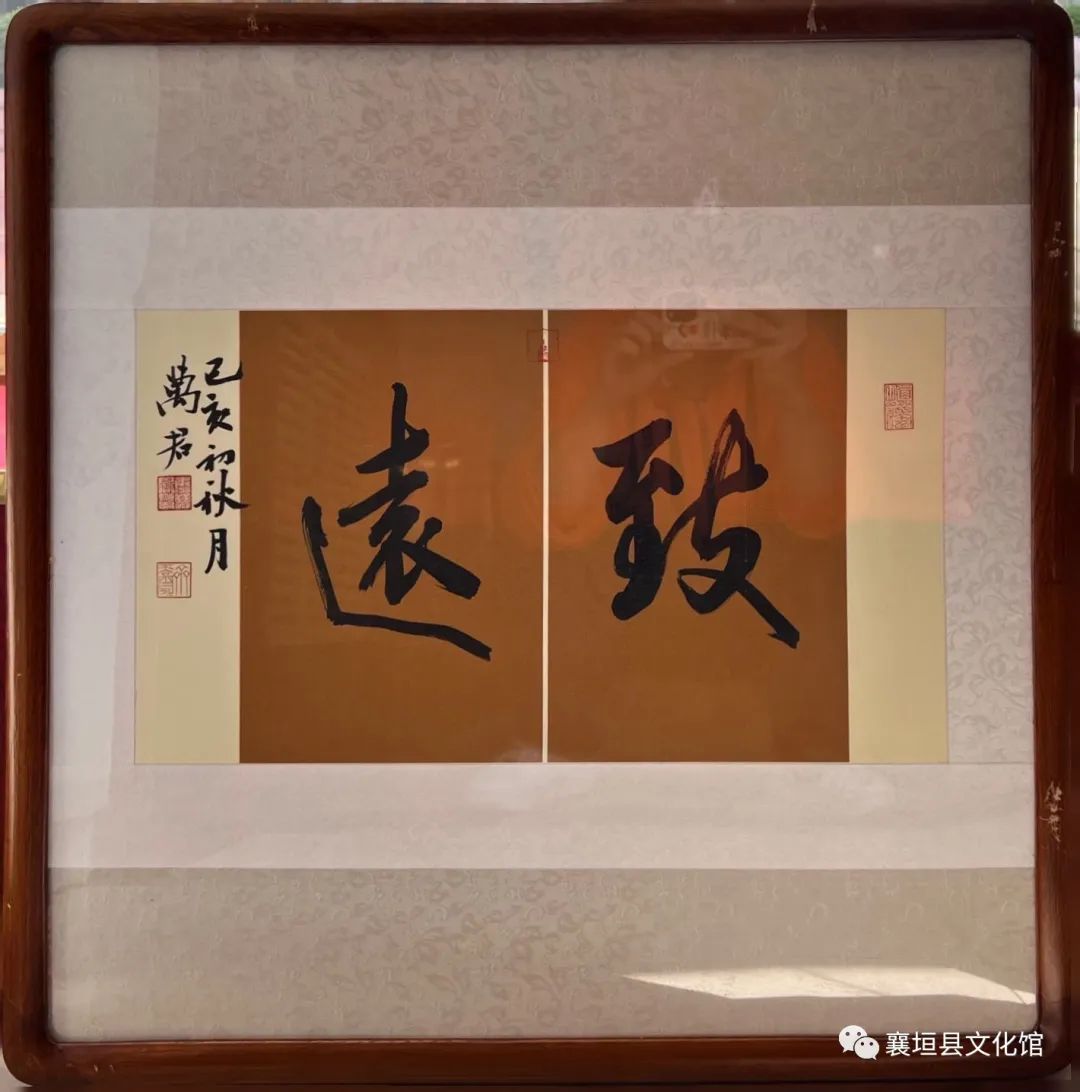 致遠
己亥初秋月
萬君
襄垣县文化馆